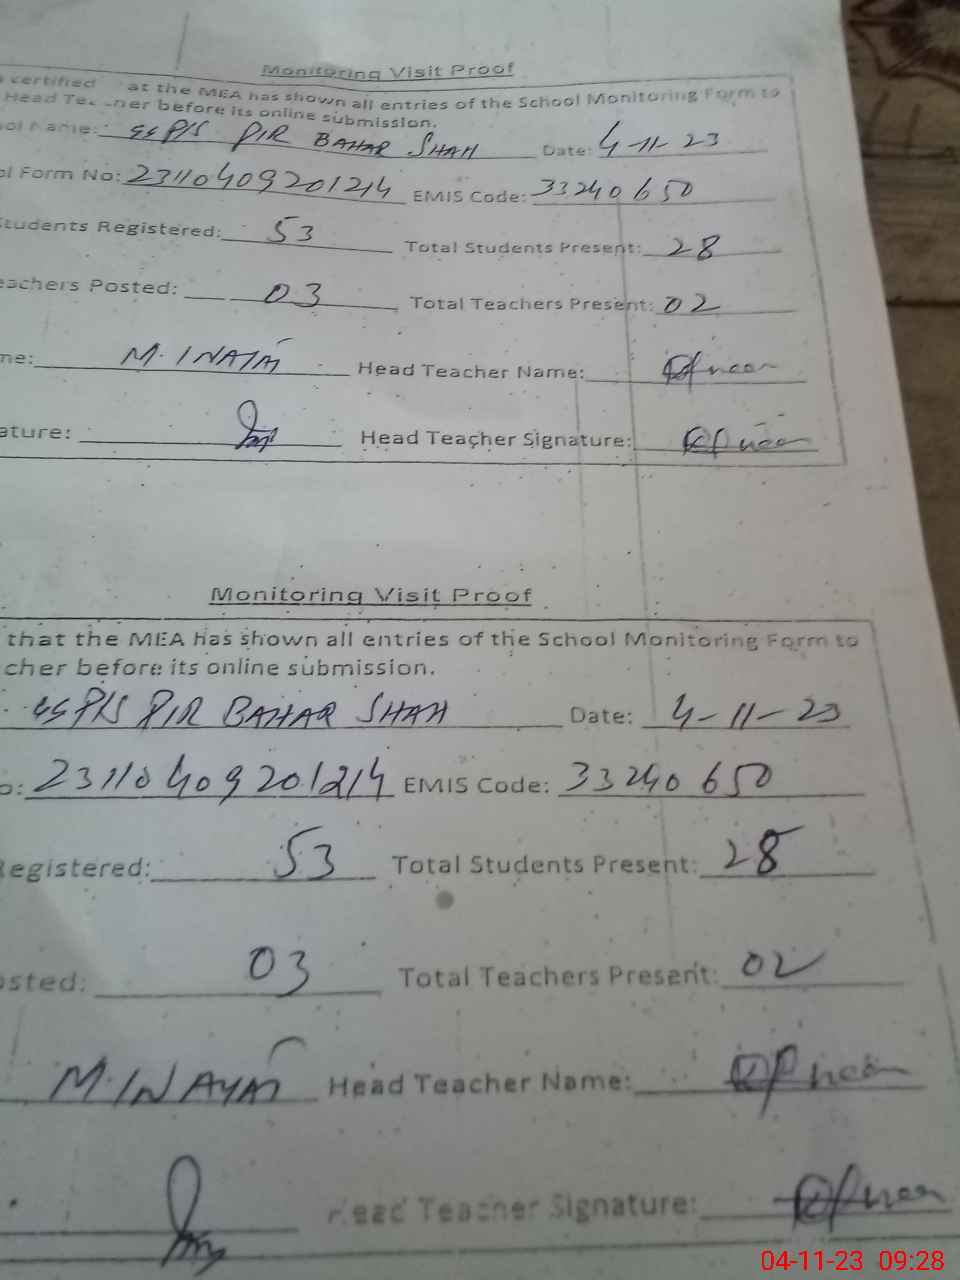 Monitoring Visit Proof
certified at the MEA has shown all entries of the School Monitoring Form to
Head Te ner before its online submission.
ool Name: GGP/S PIR BAHAR SHAH Date: 4-11-23
ol Form No: 23110409201214 EMIS Code: 33240650
Students Registered: 53 Total Students Present: 28
eachers Posted: 03 Total Teachers Present: 02
me: M. INAYAT Head Teacher Name:
ature: Head Teacher Signature:
Monitoring Visit Proof
that the MEA has shown all entries of the School Monitoring Form to
cher before its online submission.
GGP/S PIR BAHAR SHAH Date: 4-11-23
o: 23110409201214 EMIS Code: 33240650
Registered: 53 Total Students Present: 28
osted: 03 Total Teachers Present: 02
M. INAYAT Head Teacher Name:
Head Teacher Signature:
04-11-23 09:28